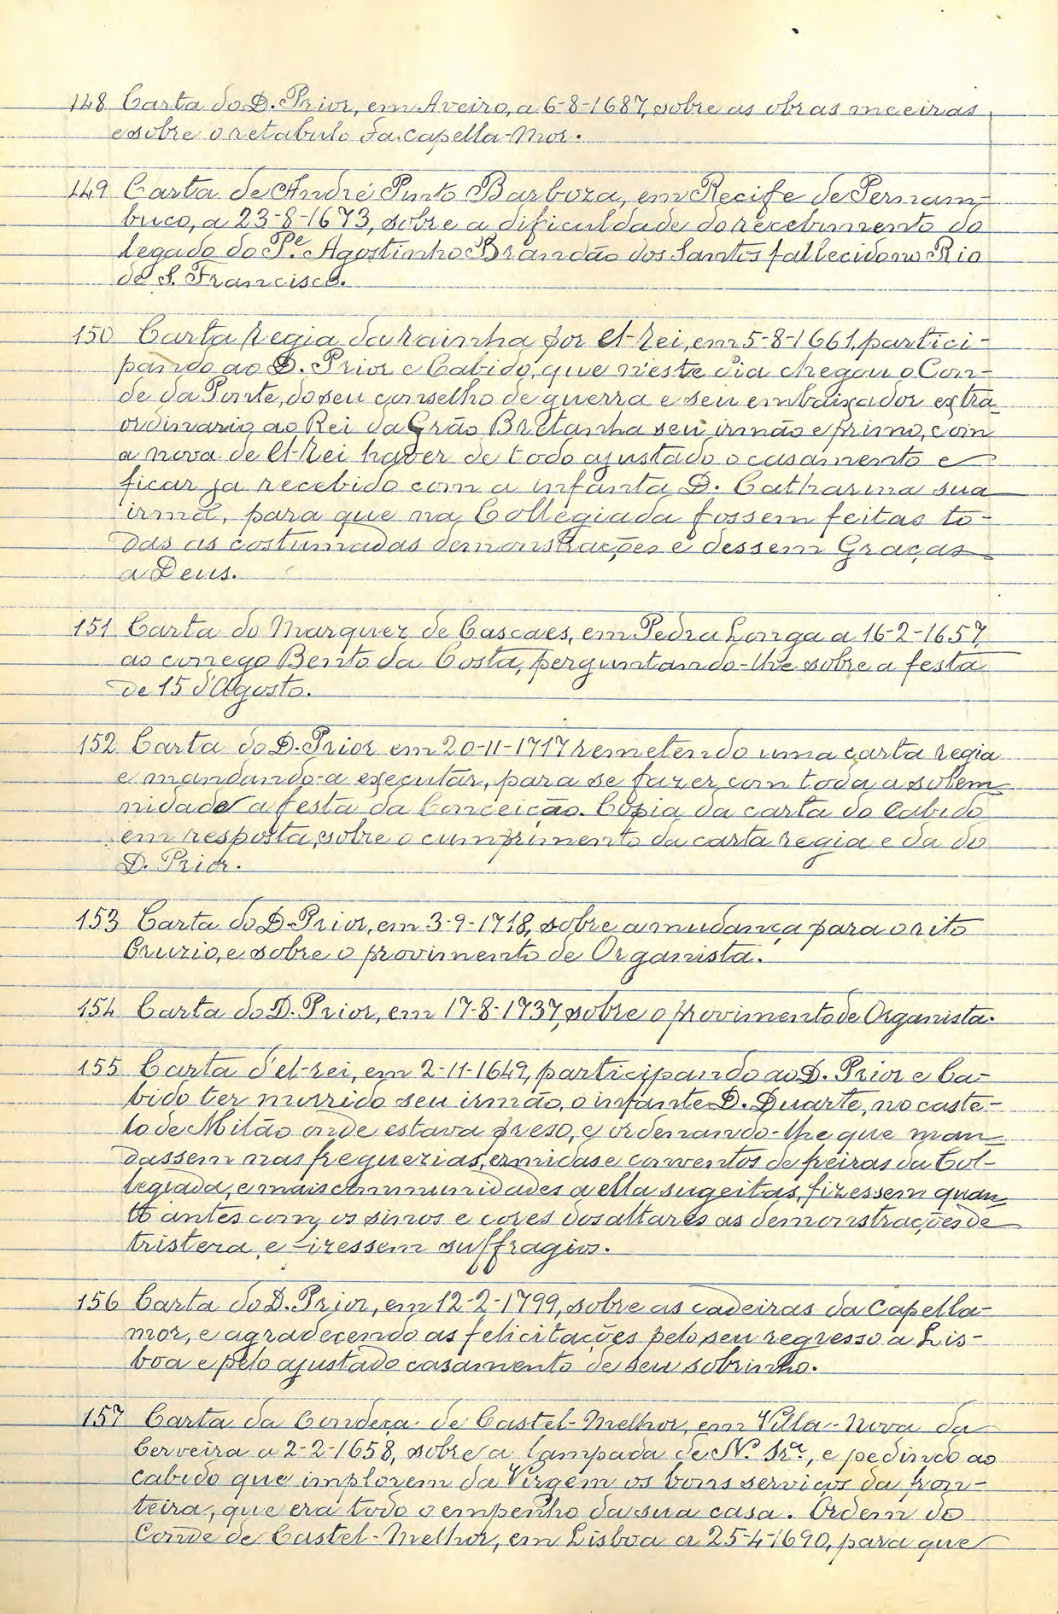 148 Carta do D. Prior, em Aveiro, a 6-8-1687, sobre as obras inceiras
e sobre o retabulo da Capella-Mor.
149 Carta de André Pinto Barboza, em Recife de Pernam-
buco, a 23-8-1673, sobre a dificuldade do recebimento do
legado do Pe. Agostinho Brandão dos Santos fallecido no Rio
de S. Francisco.
150 Carta regia da rainha por el-rei, em 5-8-1661, partici-
pando ao D. Prior e Cabido, que n'este dia chegou o Con-
de da Ponte, do seu conselho de guerra e seu embaixador extra
ordinario ao Rei da Grão Bretanha seu irmão e primo, com
a nova de el-rei haver de todo ajustado o casamento e
ficar ja recebido com a infanta D. Catharina sua
irmã, para que na Collegiada fossem feitas to-
das as costumadas demonstrações e dessem Graças
a Deus.
151 Carta do Marquez de Cascaes, em Pedra Longa a 16-2-1657,
ao conego Bento da Costa, perguntando-lhe sobre a festa
de 15 d'Agosto.
152 Carta do D. Prior em 20-11-1717 remetendo uma carta regia
e mandando-a executar, para se fazer com toda a solem-
nidade a festa da Conceição. Copia da carta do Cabido
em resposta, sobre o cumprimento da carta regia e da do
D. Prior.
153 Carta do D. Prior, em 3-9-1718, sobre a mudança para o rito
Cruzio, e sobre o provimento de Organista.
154 Carta do D. Prior, em 17-8-1737, sobre o provimento de Organista.
155 Carta d'el-rei, em 2-11-1649, participando ao D. Prior e Ca-
bido ter morrido seu irmão, o infante D. Duarte, no caste-
lo de Milão onde estava preso, e ordenando-lhe que man-
dassem nas freguezias, ermidas e conventos de freiras da Col-
legiada, e mais communidades a ella sugeitas, fizessem quan-
to antes com os sinos e cores dos altares as demonstrações de
tristeza, e fizessem suffragios.
156 Carta do D. Prior, em 12-2-1799, sobre as cadeiras da Capella-
mor, e agradecendo as felicitações pelo seu regresso a Lis-
boa e pelo ajustado casamento de seu sobrinho.
157 Carta da Condeça de Castel-Melhor, em Villa-Nova da
Cerveira a 2-2-1658, sobre a lampada de N.ª Sr.ª, e pedindo ao
cabido que implorem da Virgem os bons serviços da fron-
teira, que era todo o empenho da sua casa. Ordem do
Conde de Castel-Melhor, em Lisboa a 25-4-1690, para que